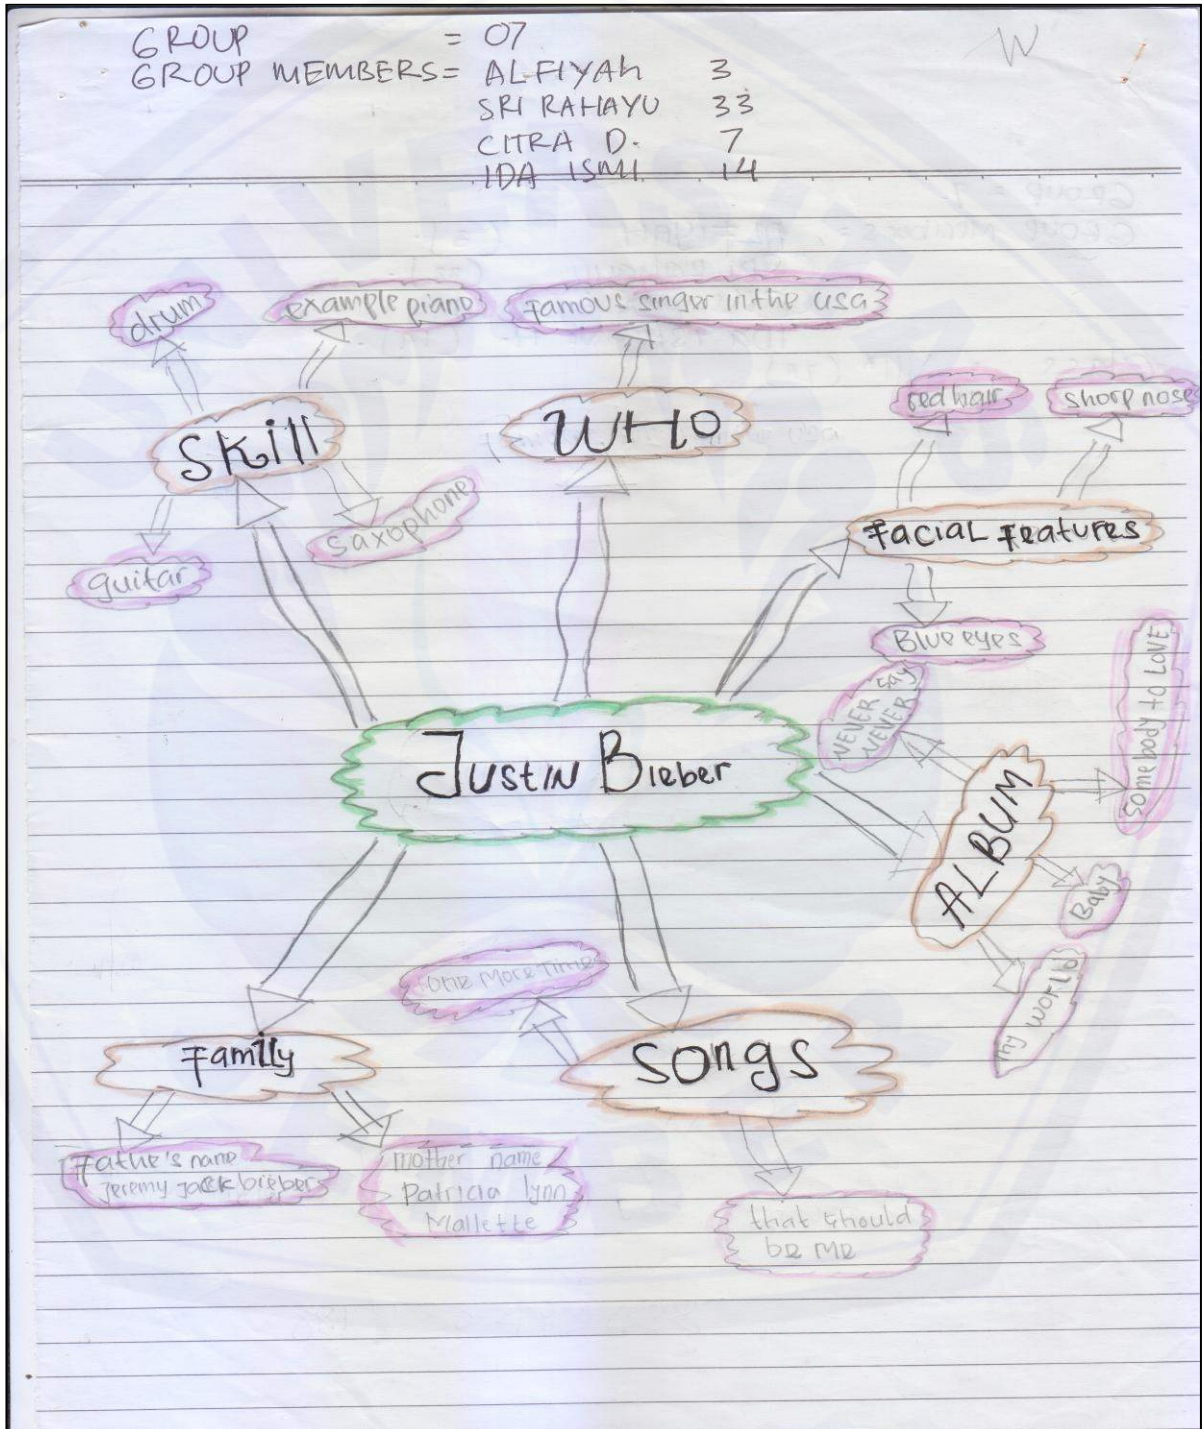 GROUP = 07
GROUP MEMBERS = ALFIYAH 3
SRI RAHAYU 33
CITRA D. 7
IDA ISMI 14
W
drum
example piano
Famous singer in the usa
Skill
WHO
red hair
sharp nose
saxophone
guitar
Facial Features
Blue eyes
NEVER Say
NEVER
Somebody to LOVE
Justin Bieber
ALBUM
Baby
my world
One More Time
Family
SOngs
Fathe's name
Jeremy Jack bieber
mother name
Patricia lynn
Mallette
that should
be me